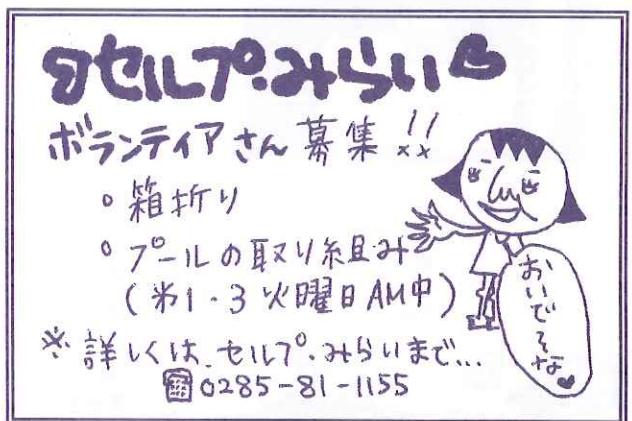 セルプ・みらい
ボランティアさん募集!!
。箱折り
。プールの取り組み
(第1・3火曜日AM中)
※詳しくは、セルプ・みらいまで…
☎0285-81-1155
おいでそな♥